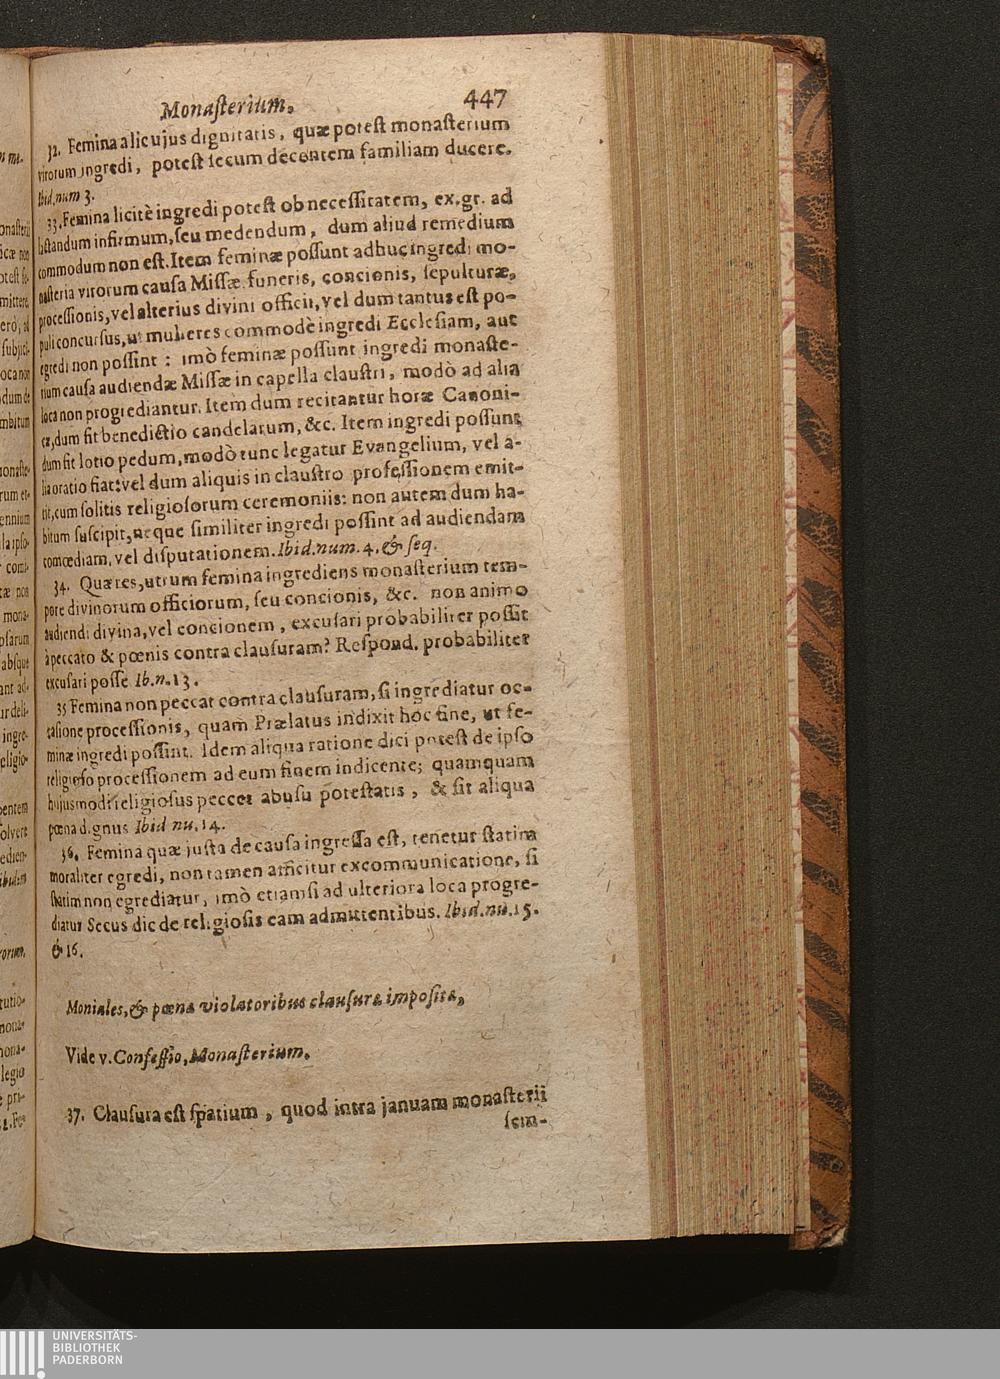 Monasterium. 447
32. Femina alicujus dignitatis, quæ potest monasterium
virorum ingredi, potest secum decentem familiam ducere.
Ibid. num 3.
33. Femina licitè ingredi potest ob necessitatem, ex. gr. ad
lactandum infirmum, seu medendum, dum aliud remedium
commodum non est. Item feminæ possunt adhuc ingredi mo-
nasteria virorum causa Missæ funeris, concionis, sepulturæ,
processionis, vel alterius divini officii, vel dum tantus est po-
puli concursus, ut mulieres commodè ingredi Ecclesiam, aut
egredi non possint : imò feminæ possunt ingredi monaste-
rium causa audiendæ Missæ in capella claustri, modò ad alia
loca non progrediantur. Item dum recitantur horæ Canoni-
cæ, dum fit benedictio candelarum, &c. Item ingredi possunt
dum fit lotio pedum, modò tunc legatur Evangelium, vel a-
lia oratio fiat: vel dum aliquis in claustro professionem emit-
tit, cum solitis religiosorum ceremoniis: non autem dum ha-
bitum suscipit, neque similiter ingredi possint ad audiendam
comœdiam, vel disputationem. Ibid. num. 4. & seq.
34. Quæres, utrum femina ingrediens monasterium tem-
pore divinorum officiorum, seu concionis, &c. non animo
audiendi divina, vel concionem, excusari probabiliter possit
à peccato & pœnis contra clausuram? Respond. probabiliter
excusari posse Ib. n. 13.
35 Femina non peccat contra clausuram, si ingrediatur oc-
casione processionis, quam Prælatus indixit hoc fine, ut fe-
minæ ingredi possint. Idem aliqua ratione dici potest de ipso
religioso processionem ad eum finem indicente; quamquam
hujusmodi religiosus peccet abusu potestatis, & sit aliqua
pœna dignus Ibid nu. 14.
36. Femina quæ justa de causa ingressa est, tenetur statim
moraliter egredi, non tamen afficitur excommunicatione, si
statim non egrediatur, imò etiamsi ad ulteriora loca progre-
diatur Secus dic de religiosis eam admittentibus. Ibid. nu. 15.
& 16.
Moniales, & pœna violatoribus clausuræ imposita,
Vide v. Confessio, Monasterium.
37. Clausura est spatium, quod intra januam monasterii
sem-
UNIVERSITÄTS-
BIBLIOTHEK
PADERBORN